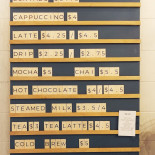 CAPPUCCINO $4
LATTE $4.25 / $4.5
DRIP $2.25 / $2.75
MOCHA $5 CHAI $5.5
HOT CHOCOLATE $4/$4.5
STEAMED MILK $3.5/4
TEA $3 TEA LATTE $4.5
COLD BREW $5